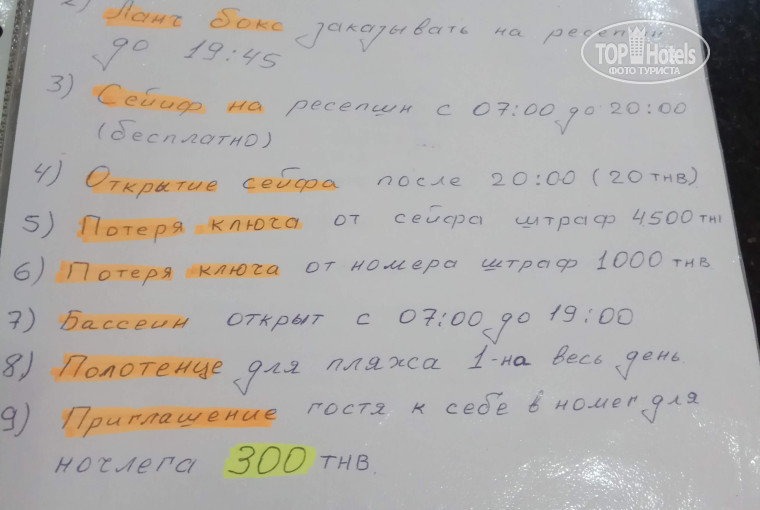 2) Ланч бокс заказывать на ресепшн
до 19:45
3) Сейиф на ресепшн с 07:00 до 20:00
(бесплатно)
4) Открытие сейфа после 20:00 (20 тнв)
5) Потеря ключа от сейфа штраф 4500 тн
6) Потеря ключа от номера штраф 1000 тнв
7) Бассеин открыт с 07:00 до 19:00
8) Полотенце для пляжса 1-на весь день.
9) Приглашение гостя к себе в номег для
ночлега 300 тнв.
TOP Hotels
ФОТО ТУРИСТА